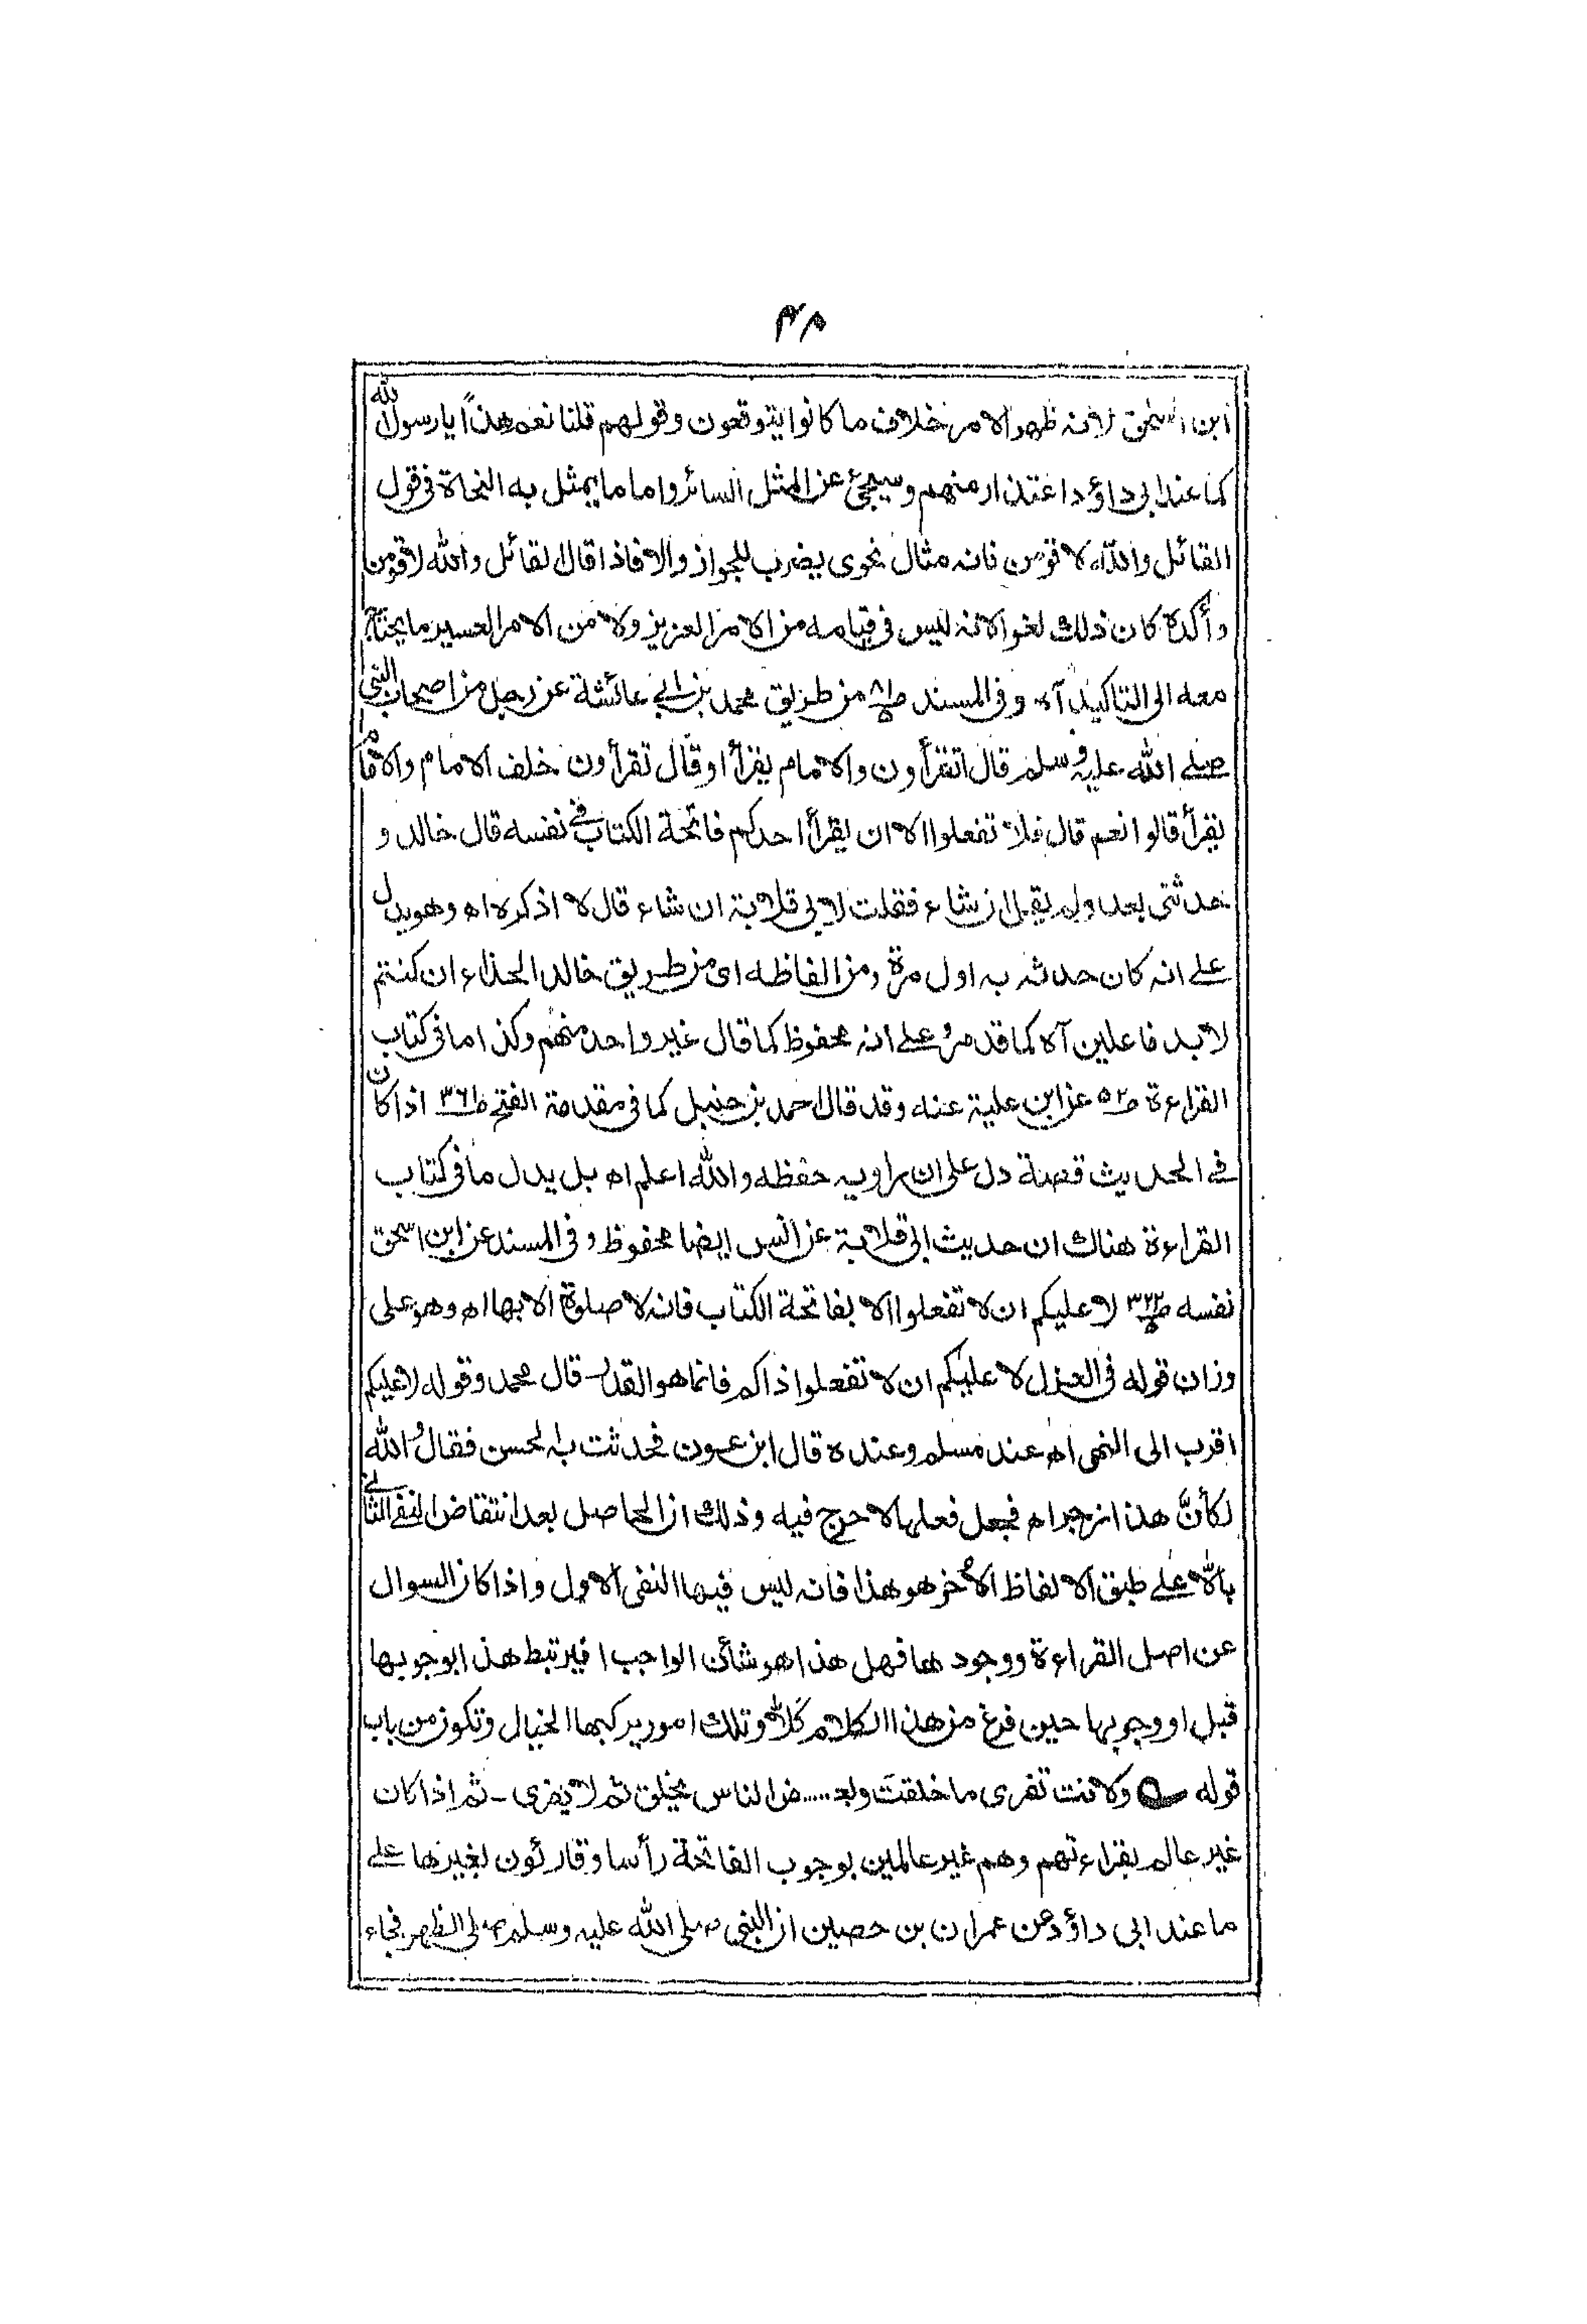 ٣٨
ابن اسحٰق لانه ظهر الامر خلاف ما كانوا يتوقعون وقولهم قلنا نعم هذًا يا رسول الله
كما عند ابي داؤد اعتذار منهم وسيجئ عن المثل السائر واما ما يمثل به النحاة في قول
القائل والله لاقومن فانه مثال نحوي يضرب للجواز والا فاذا قال القائل والله لاقومن
وأكده كان ذلك لغوا لانه ليس في قيامه من الامر العزيز ولا من الامر العسير ما يحتاج
معه الى التاكيد آه وفي المسند من طريق محمد بن ابي عائشة عن رجل من اصحاب النبي
صلے الله عليه وسلم قال اتقرأون والامام يقرأ او قال تقرأون خلف الامام والامام
يقرأ قالوا نعم قال فلا تفعلوا الا ان يقرأ احدكم فاتحة الكتاب في نفسه قال خالد و
حدثني بعد ولم يقل ان شاء فقلت لابي قلابة ان شاء قال لا اذكره اه وهو يدل
علے انه كان حدثه به اول مرة ومن الفاظه اى من طريق خالد الحذاء ان كنتم
لا بد فاعلين آه كما قد مر وعلے انه محفوظ كما قال غير واحد منهم وكذا ما في كتاب
القراءة ص٥٢ عن ابن علية عنه وقد قال احمد بن حنبل كما في مقدمة الفتح ص٣٦١ اذا كان
في الحديث قصة دل على ان راويه حفظه والله اعلم اه بل يدل ما في كتاب
القراءة هناك ان حديث ابي قلابة عن انس ايضا محفوظ وفي المسند عن ابن اسحق
نفسه ص٣٢٢ لا عليكم ان لا تفعلوا الا بفاتحة الكتاب فانه لا صلوة الا بها اه وهو على
وزان قوله في العزل لا عليكم ان لا تفعلوا ذاكم فانما هو القدر قال محمد وقوله لا عليكم
اقرب الى النهى اه عند مسلم وعنده قال ابن عون فحدثت به الحسن فقال والله
لكأنّ هذا زجر اه فجعل فعلها لا حرج فيه وذلك ان الحاصل بعد انتقاض النفے الثانے
بالا علے طبق الالفاظ الأخر هو هذا فانه ليس فيها النفى الاول واذا كان السوال
عن اصل القراءة ووجودها فهل هذا هو شأن الواجب افيرتبط هذا بوجوبها
قبل او وجوبها حين فرغ من هذا الكلام كلا وتلك امور يركبها الخيال وتكون من باب
قوله ولانت تفرى ما خلقت وبعـ..... ض الناس يخلق ثم لا يفرى ـ ثم اذا كان
غير عالم بقراءتهم وهم غير عالمين بوجوب الفاتحة رأسا وقارئون بغيرها علے
ما عند ابى داؤد عن عمران بن حصين ان النبى صلى الله عليه وسلم صلى الظهر فجاء